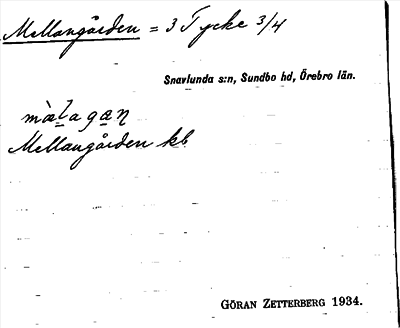 Mellangården = 3 Tycke 3/4
Snavlunda s:n, Sundbo hd, Örebro län.
Mellangården kb
GÖRAN ZETTERBERG 1934.